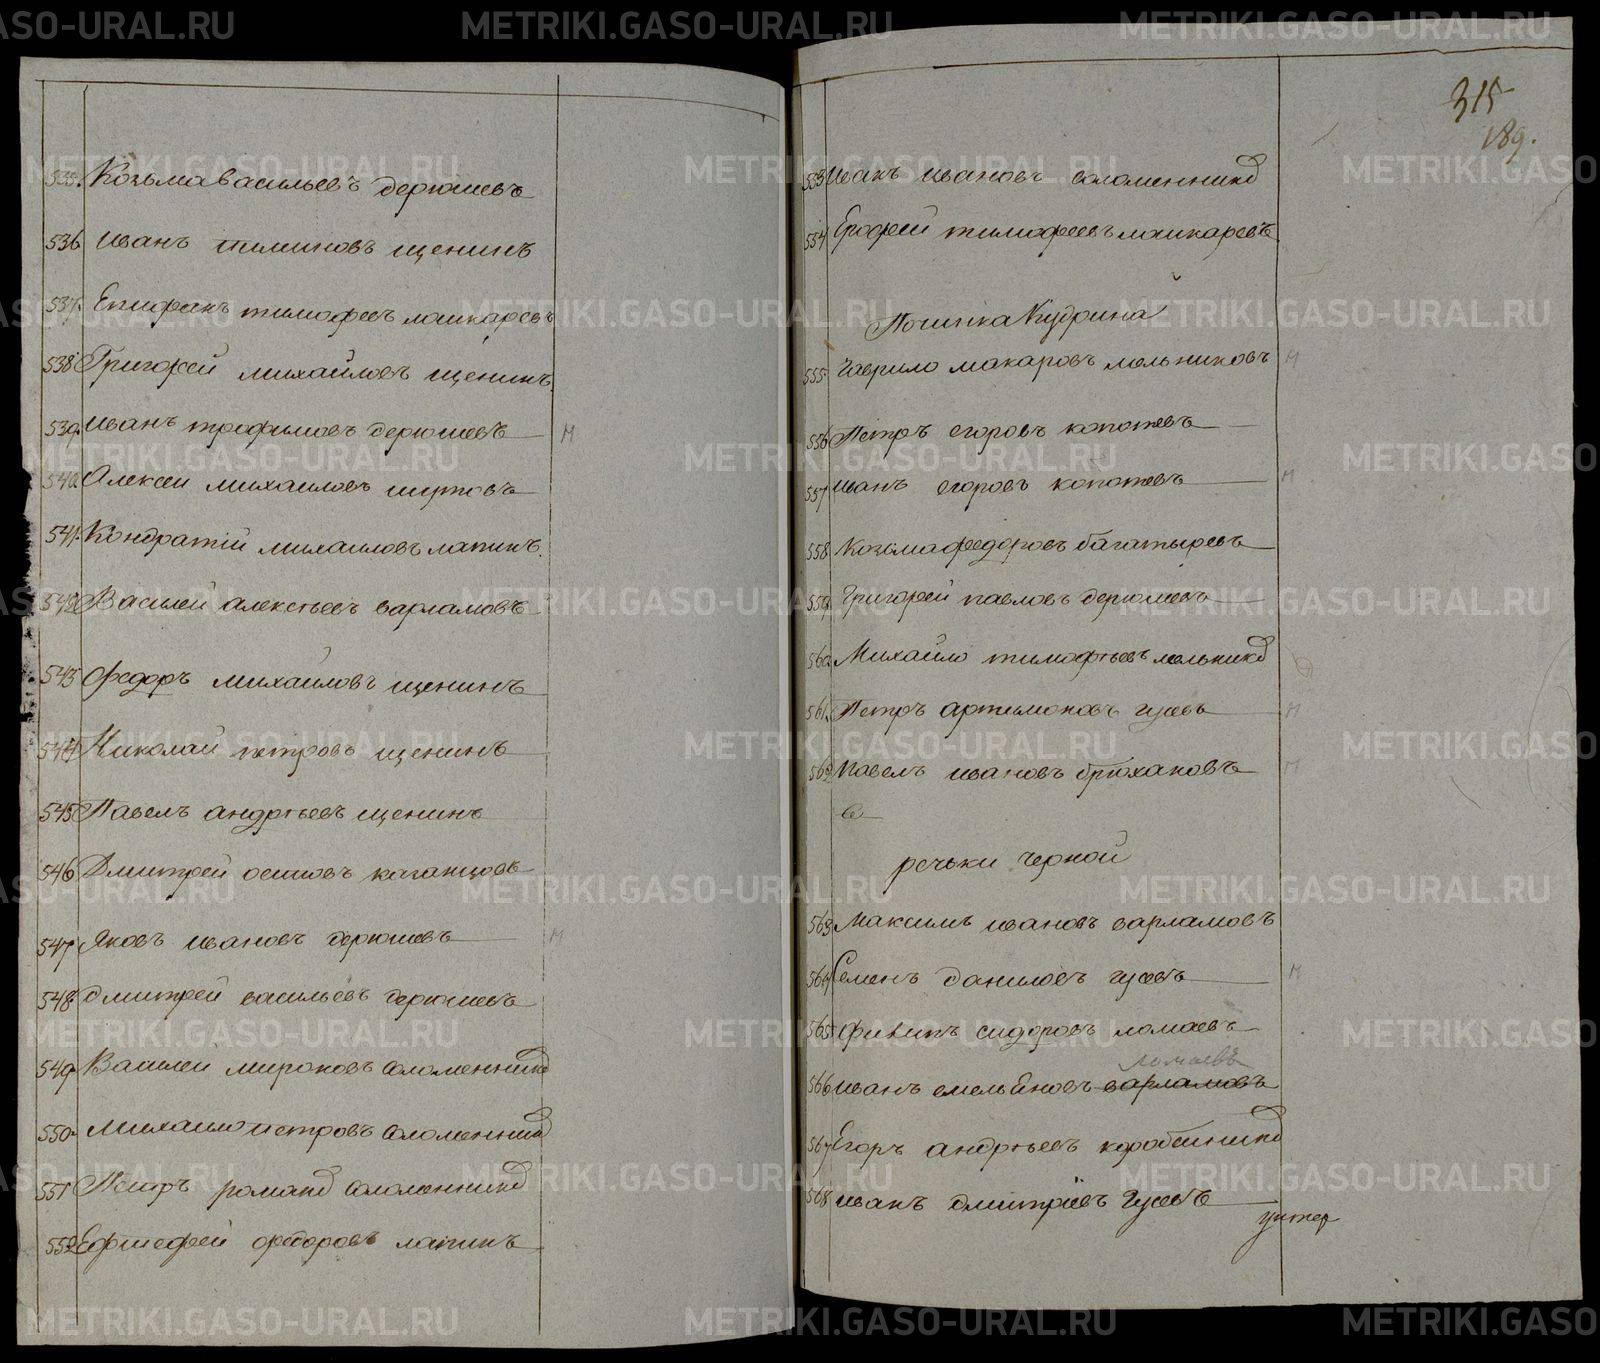 535. Козьма васильевъ дерюшевъ
536 иванъ тимиховъ щенинъ
537. Епифанъ тимофеевъ лошкаревъ
538 Григорей михайловъ щенинъ
539. иванъ трофимовъ дерюшевъ М
540. Алексеи михаиловъ
541. Кондратiй михаиловъ лапинъ.
542. Василей алексѣевъ варламовъ
543 Федоръ михаиловъ щенинъ
544 Николай петровъ щенинъ
545 Павелъ андрѣевъ щенинъ
546 Дмитрей осиповъ казанцовъ
547 Яковъ ивановъ дерюшевъ М
548 дмитрей васильевъ дерюшевъ
549. Василеи мироновъ соломенник
550. михаило петровъ соломенник
551 Петръ роман соломенник
552 федоровъ лапинъ
315
189.
553 иванъ ивановъ соломенник
554 Ерофеи тимофеевъ лошкаревъ
Починка Кудрина
555. Гаврило макаровъ мельниковъ М
556 Петръ егоровъ копотевъ
557 иванъ егоровъ копотевъ М
558 Козьма федоровъ багатыревъ
559. Григорей павловъ дерюшевъ
560. Михаило тимофѣевъ мельник
561. Петръ артимоновъ гусевъ М
562 Павелъ ивановъ брюхановъ М
речьки черной
563 максимъ ивановъ варламовъ
564 Семенъ даниловъ гусевъ М
565 филипъ сидоровъ ломаевъ
ломаевъ
566 иванъ емельеновъ варламовъ
567 Егоръ андрѣевъ коробейник
568 иванъ дмитрiевъ гусевъ
унтер
METRIKI.GASO-URAL.RU